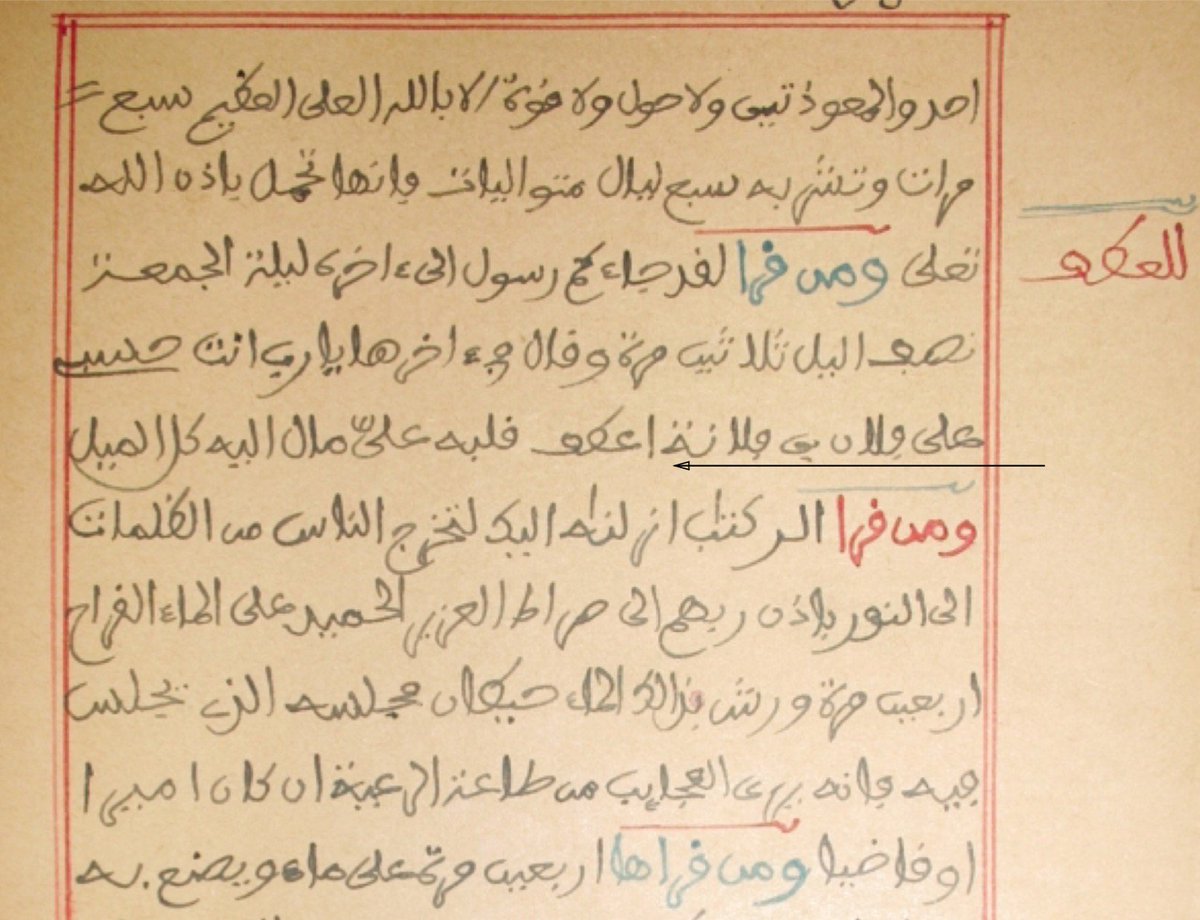 احد والمعوذتين ولا حول ولا قوة الا بالله العلى العظيم سبع
مرات وتشربه سبع ليال متواليات فانها تحمل باذن الله
تعلى ومن قرا لقد جاءكم رسول الىء اخره ليلة الجمعة
للعطف
نصف اليل ثلاثين مرة وقال فىء اخرها يا رب انت حسبى
على فلان بن فلانة اعطف قلبه علىّ مال اليه كل الميل
ومن قرا الر كتاب انزلناه اليك لتخرج الناس من الظلمات
الى النور باذن ربهم الى صراط العزيز الحميد على الماء القراح
اربعين مرة ورش بذالك الماء حيطان مجلسه الذى يجلس
فيه فانه يرى العجايب من طاعة الرعية ان كان اميرا
او قاضيا ومن قراها اربعين مرة على ماء ويضع به